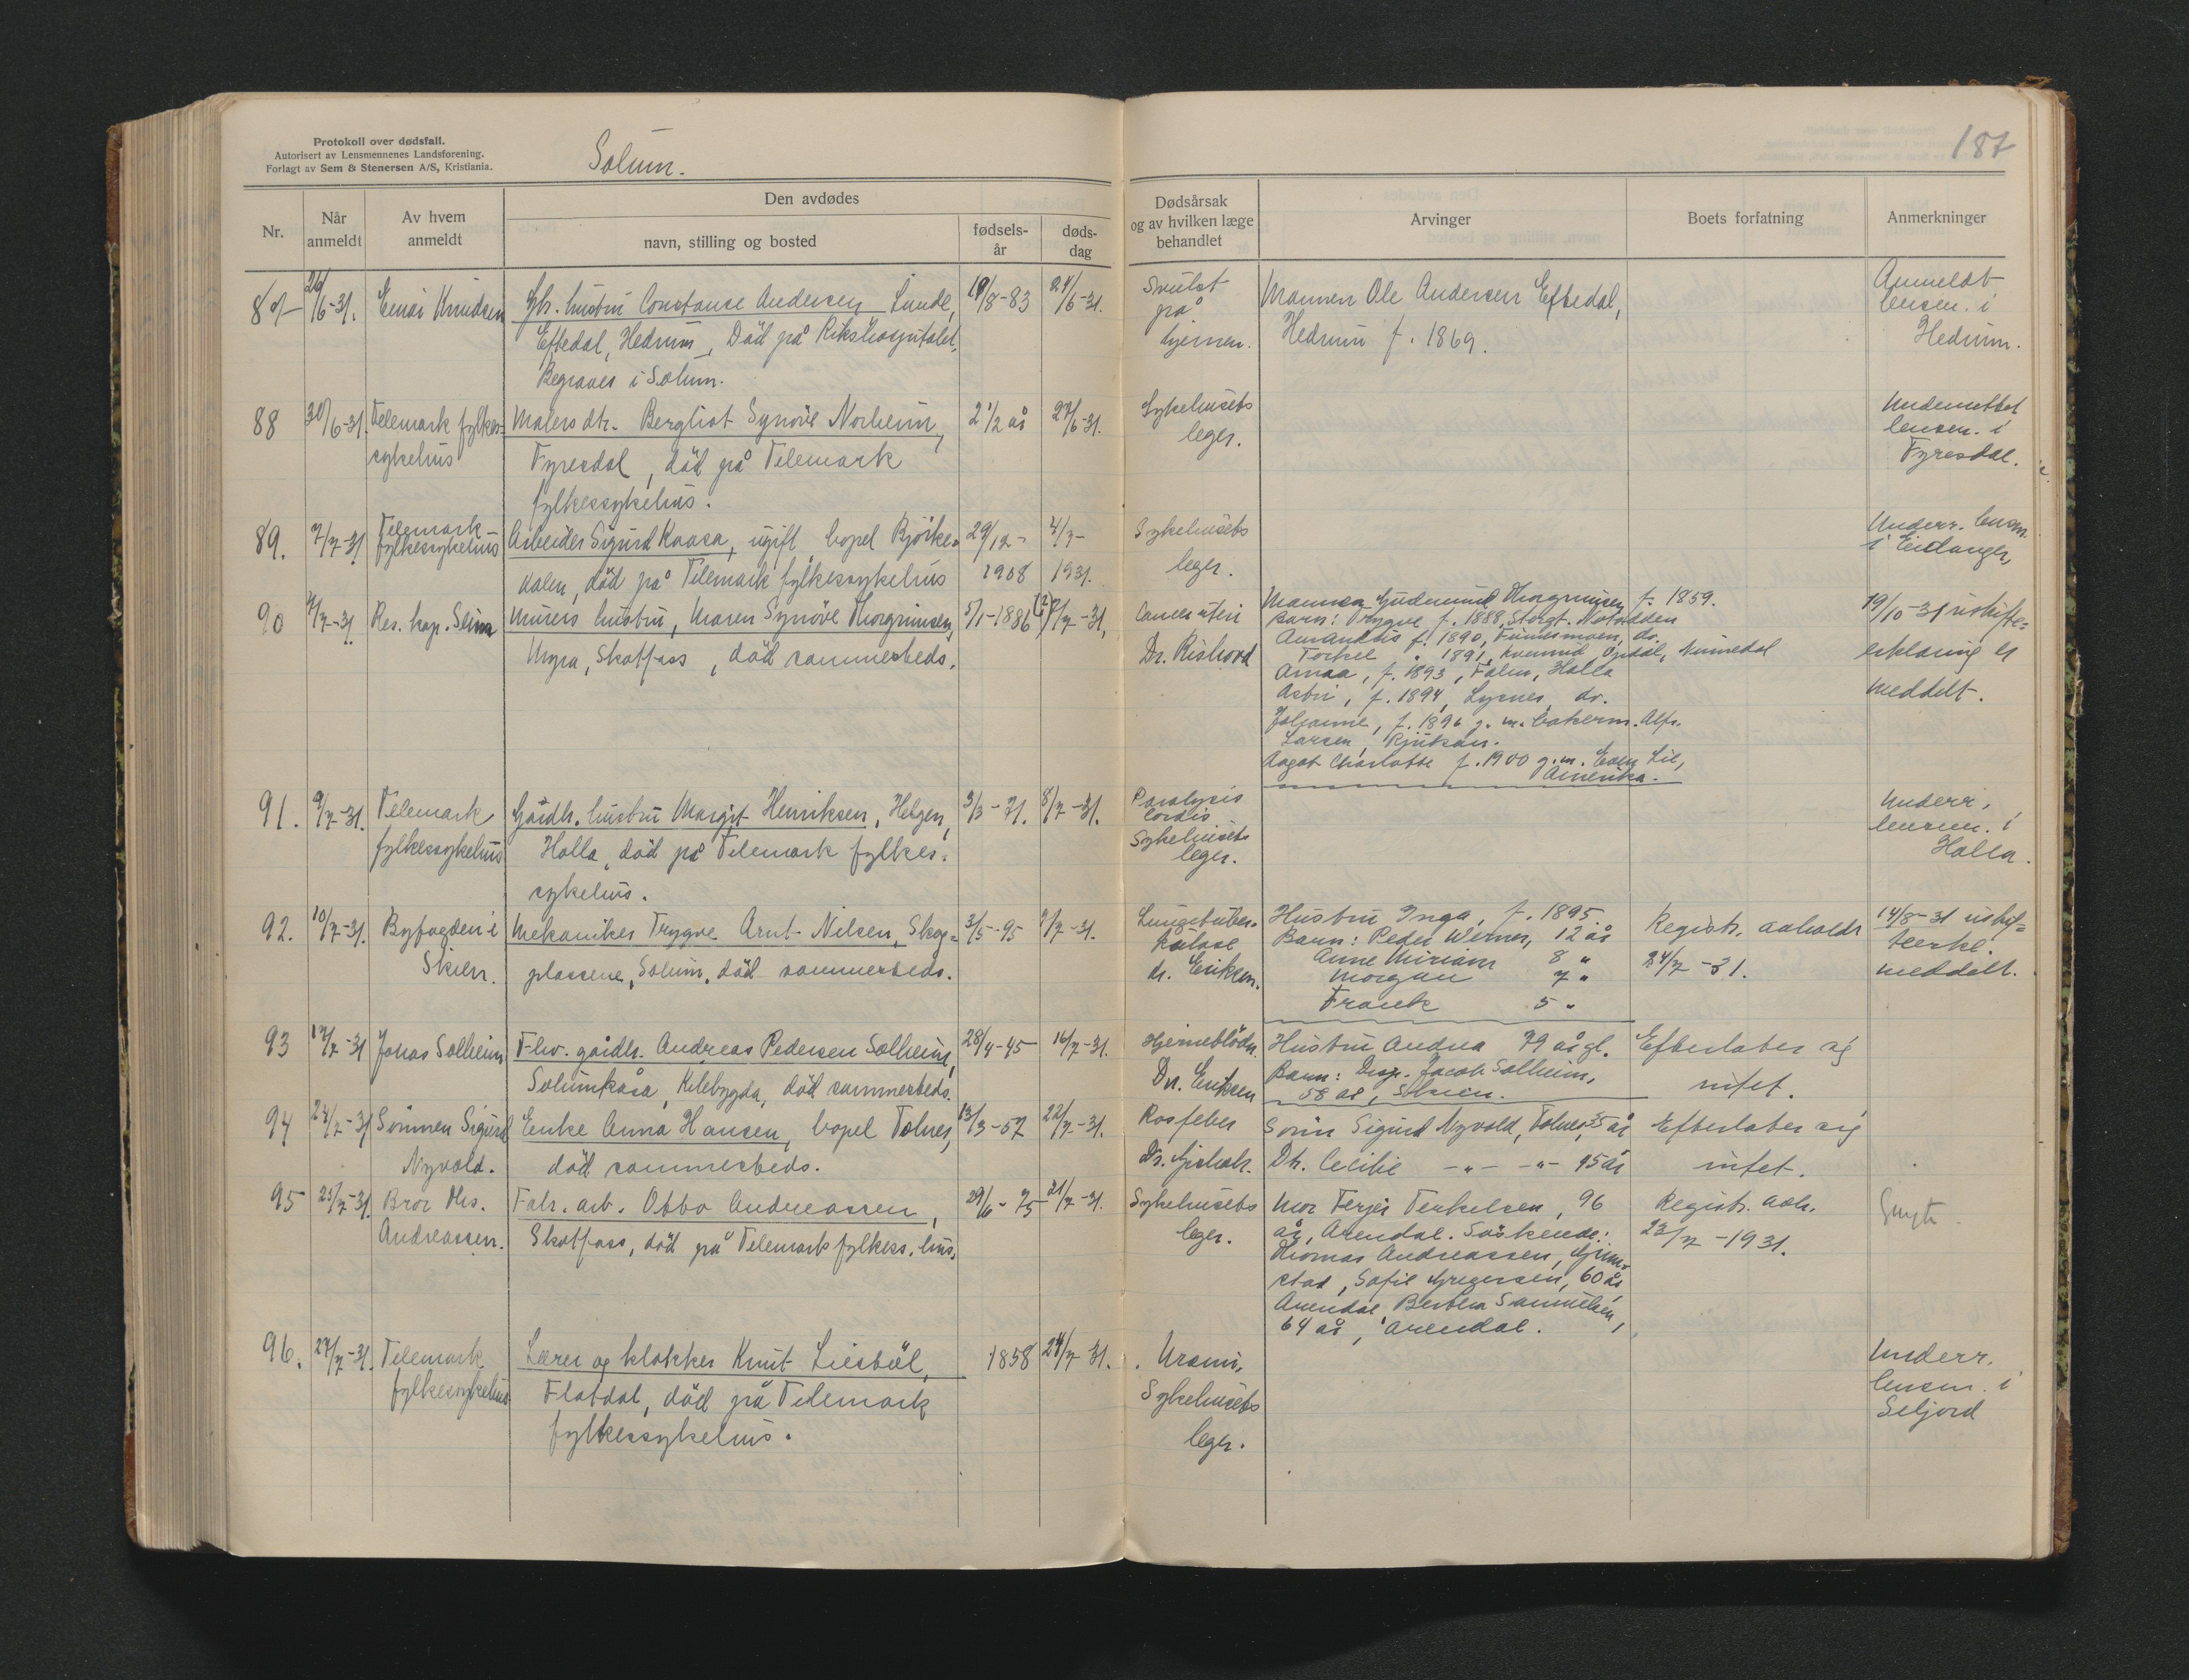 Protokoll over dødsfall.
Autorisert av Lensmennenes Landsforening.
Forlagt av Sem & Stenersen A/S, Kristiania.
Solum.
187
Nr.
Når anmeldt
Av hvem anmeldt
Den avdødes
navn, stilling og bosted
fødsels-år
døds-dag
Dødsårsak og av hvilken læge behandlet
Arvinger
Boets forfatning
Anmerkninger
87 26/6-31. Einar Knudsen Gbr. hustru Constance Andersen Lunde, 19/8-83 24/6-31.
Eftedal, Hedrum, Död på Rikshospitalet,
Begraves i Solum.
Svulst
på
hjernen.
Mannen Ole Andersen Eftedal,
Hedrum f. 1869.
Anmeldt
lensm. i
Hedrum.
88 30/6-31. Telemark fylkes- Malers dtr. Bergliot Synöve Norheim, 2 1/2 år 27/6-31.
sykehus Fyresdal, död på Telemark
fylkessykehus.
Sykehusets
leger.
Underrettet
lensm. i
Fyresdal.
89. 7/7-31 Telemark
fylkessykehus Arbeider Sigurd Kaasa, ugift, bopel Bjørke- 29/12- 4/7-
dalen, död på Telemark fylkessykehus 1908 1931.
Sykehusets
leger.
Underr. lensm.
i Eidanger,
90 7/7-31 Res. kap. Seim Murers hustru, Maren Synöve Thorgrimsen, 5/1-1886 7/7-31,
Skotfoss, död sammesteds.
Cancer uteri
Dr. Rishovd
Mannen Gudmund Thorgrimsen f. 1859.
Barn: Trygve f. 1888, Storgt. Notodden
Amandus f. 1890, Tinnesmoen, do.
Torkel " 1891, Opdal, Numedal
Arnaa, f. 1893, Falen, Holla
Astri, f. 1894, Lysnes, do.
Johanne, f. 1896 g. m. bakerm. Alfr.
Larsen, Rjukan.
Aagot Charlotte f. 1900 g.m. Even Lie,
Amerika.
19/10-31 uskifte-
erklæring er
meddelt.
91. 9/7-31. Telemark Gårdbr. hustru Margit Henriksen, Helgen, 3/3-71. 8/7-31.
fylkessykehus Holla, död på Telemark fylkes-
sykehus.
Paralysis
Cordis
Sykehusets
leger.
Underr.
lensm. i
Holla.
92. 10/7-31. Byfogden i Mekaniker Trygve Arnt Nilsen, Skog- 3/5-95 9/7-31.
Skien. plassene, Solum, död sammesteds.
Lungetuber-
kulose
dr. Eriksen.
Hustru Inga, f. 1895.
Barn: Peder Werner, 12 år
Anne Miriam 8 "
Morgan 7 "
Frank 5 "
Registr. avholdt
24/7-31.
14/8-31 uskif-
teerkl.
meddelt.
93 17/7-31 Johas Solheim Fhv. gårdbr. Andreas Pedersen Solheim, 28/4-45 16/7-31.
Solumkåsa, Kilebygda, död sammesteds.
Hjerneblödn.
Dr. Eriksen
Hustru Andrea 79 år gl.
Barn: Disp. Jacob Solheim,
58 år, Skien.
Efterlater sig
intet.
94 24/7-31 Sönnen Sigurd Enke Anna Hansen, bopel Tolnes, 13/3-57 22/7-31.
Nyvold. död sammesteds.
Rosfeber
Sönn Sigurd Nyvold, Tolnes, 35 år
Dtr. Cecilie -"- -"- 45 år
Efterlater sig
intet.
95 23/7-31. Bror Ths. Fabr. arb. Otto Andreassen, 29/6-75 21/7-31.
Andreassen. Skotfoss, död på Telemark fylkess. hus.
Sykehusets
leger.
Mor Terjer Terkelsen, 96
år, Arendal. Söskende:
Thomas Andreassen, Grim-
stad, Sofie Gregersen, 60 år,
Arendal, Berthea Samuelsen,
64 år, Arendal.
Registr. avh.
23/7-1931.
96. 27/7-31. Telemark Lærer og klokker Knut Liesböl, 1858 24/7-31.
fylkessykehus Flatdal, död på Telemark
fylkessykehus.
Uremi,
Sykehusets
leger.
Underr.
lensm. i
Seljord